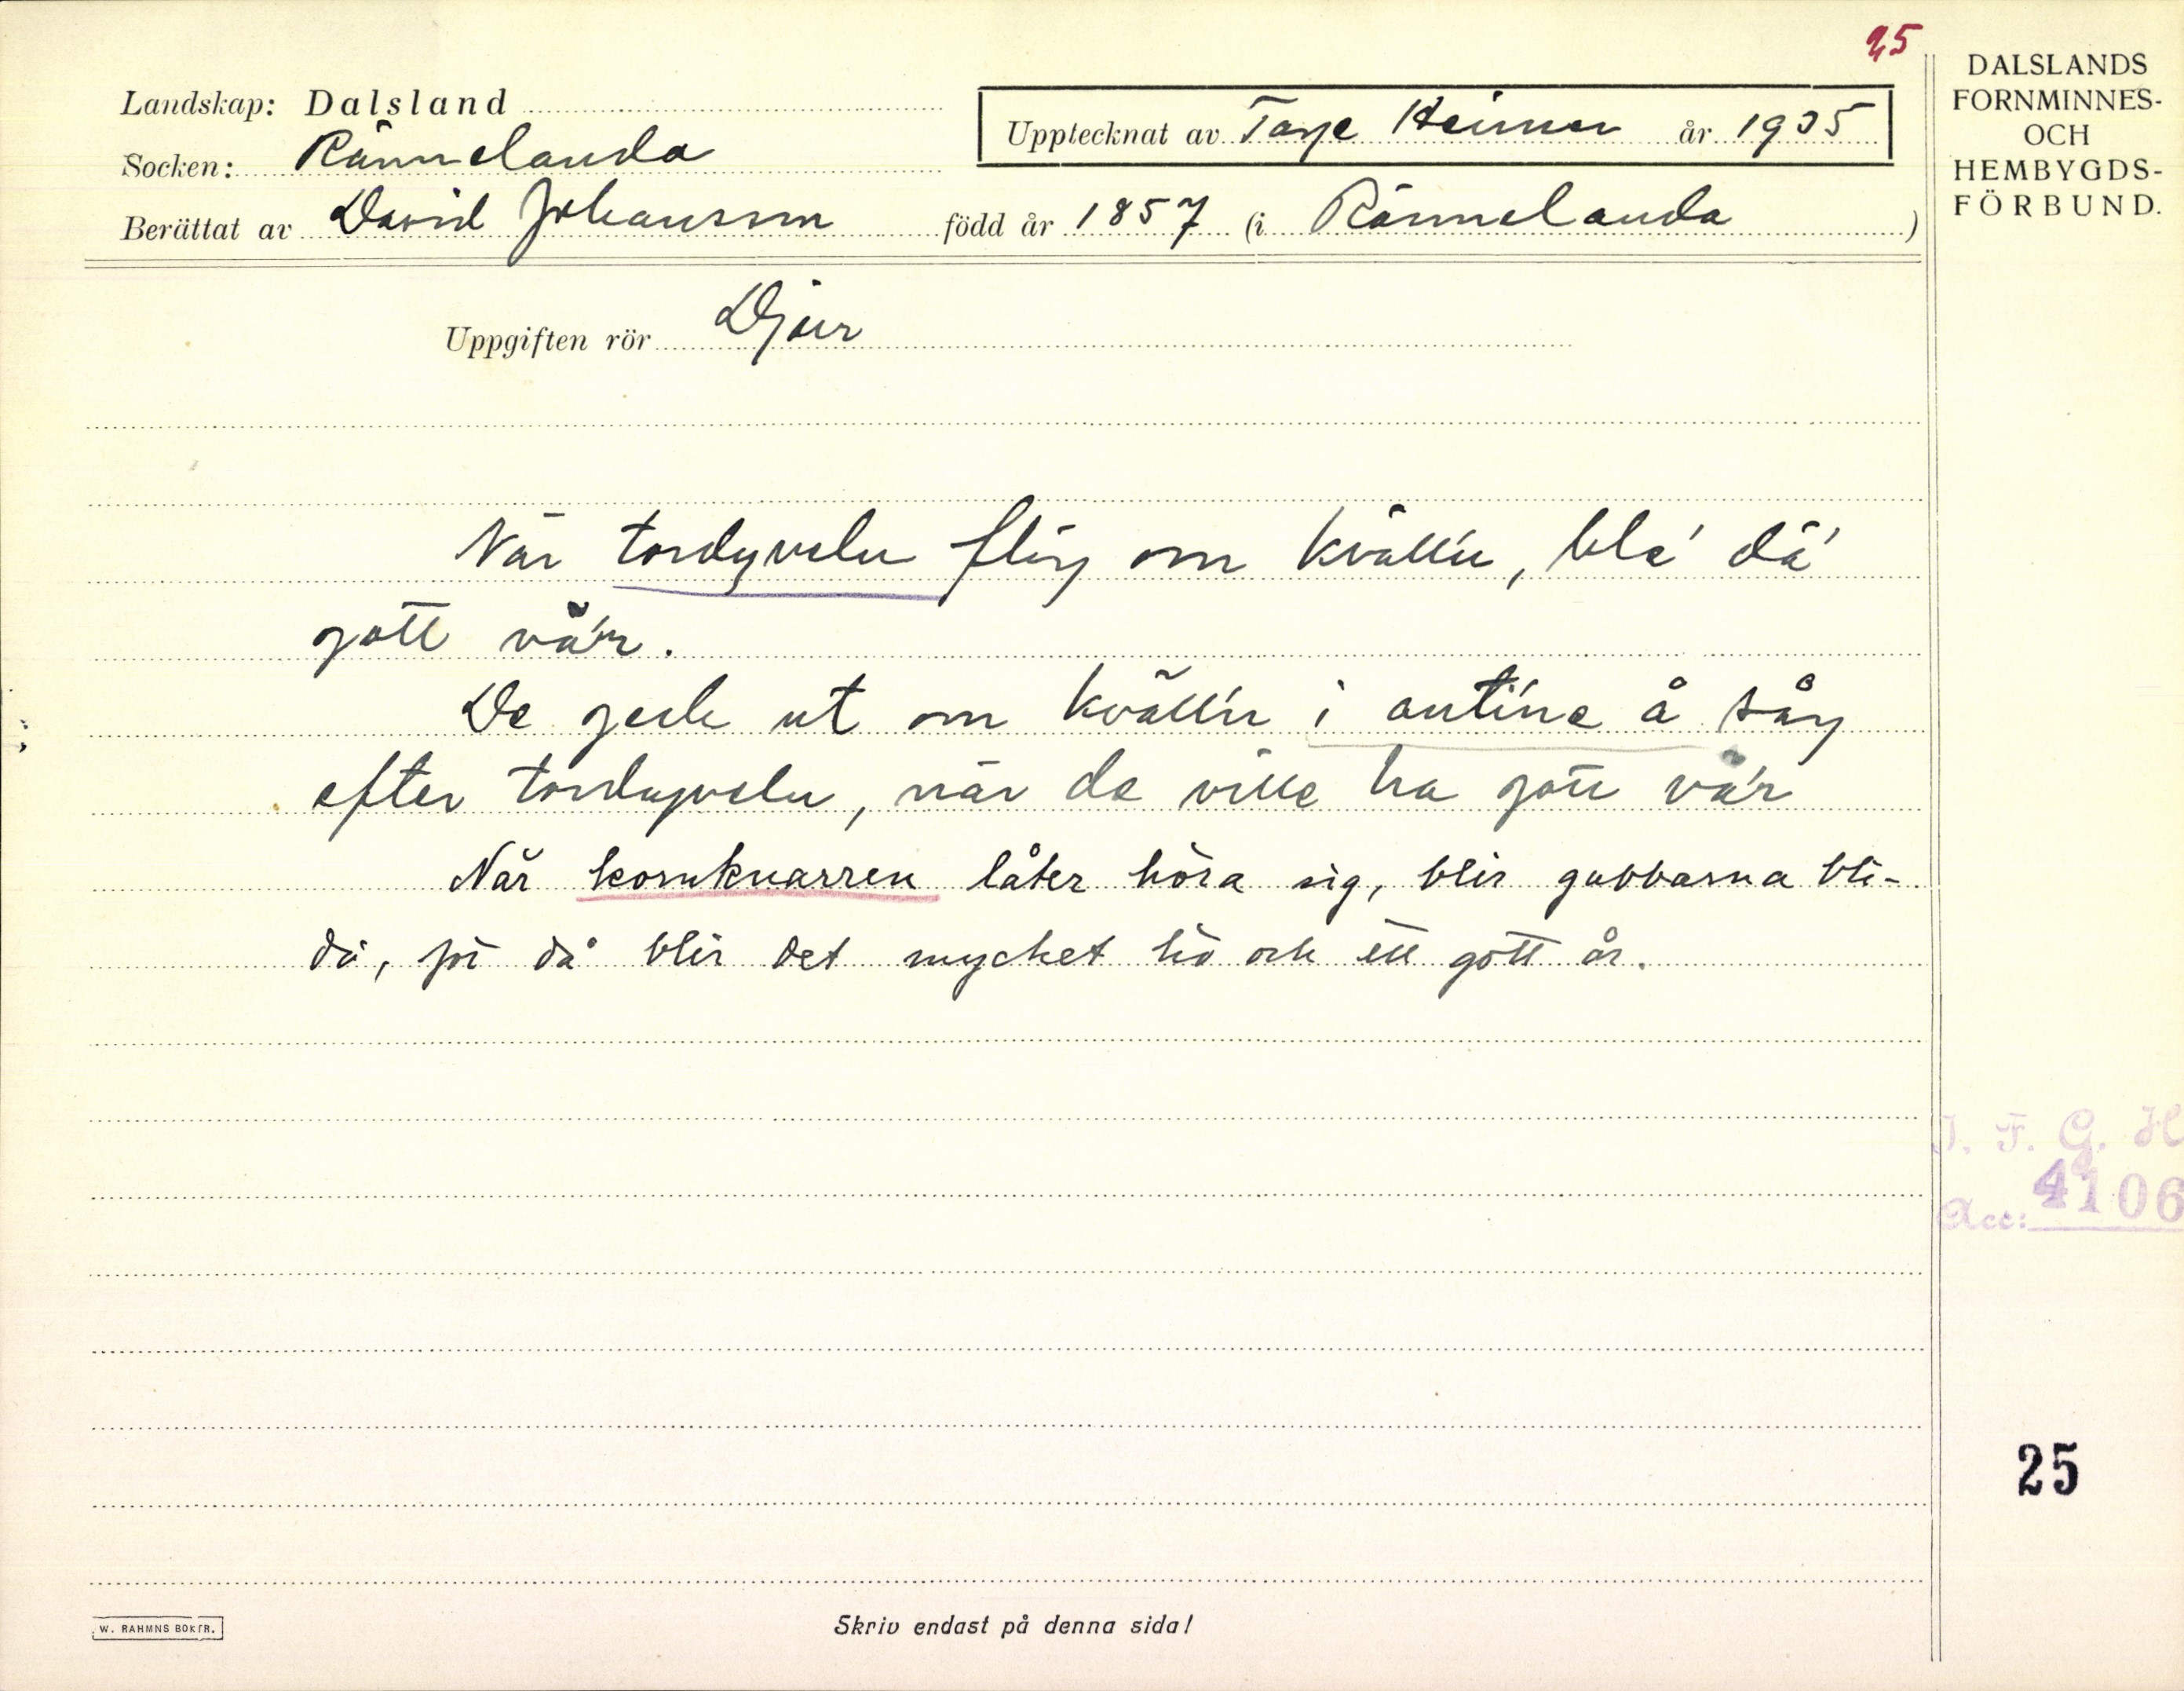 25
DALSLANDS
FORNMINNES-
OCH
HEMBYGDS-
FÖRBUND.
Landskap: Dalsland
Upptecknat av Tage Heimer år 1935
Socken: Rännelanda
Berättat av David Johansson född år 1857 (i Rännelanda)
Uppgiften rör Djur
När tordyveln flög om kvälln, ble' dä'
gott vä'r.
De gech ut om kvälln i ontine å såg
efter tordyveln, när de ville ha gott vä'r
När kornknarren låter höra sig, blir gubbarna bli-
da, för då blir det mycket hö och ett gott år.
I. F. G. H
Acc: 4106
25
W. RAHMNS BOKTR.
Skriv endast på denna sida!